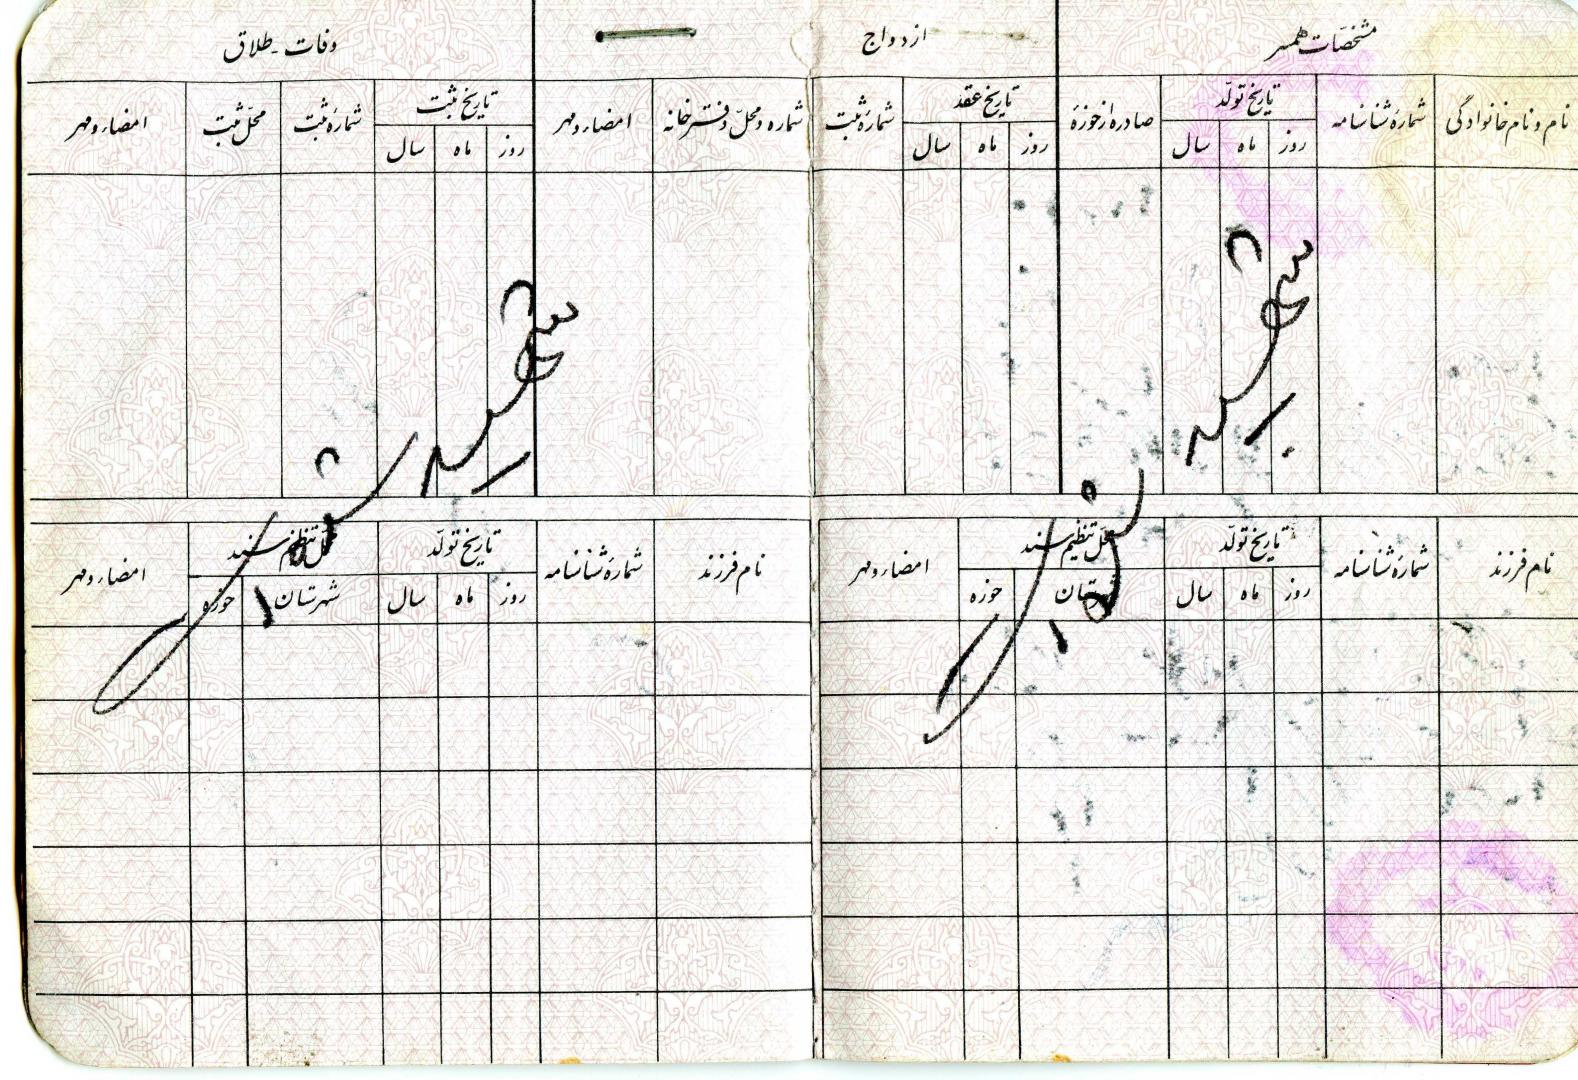 مشخصات همسر ازدواج
نام و نام خانوادگی شماره شناسنامه تاریخ تولد صادره از حوزه تاریخ عقد شماره ثبت
روز ماه سال روز ماه سال
شهید
نام فرزند شماره شناسنامه تاریخ تولد محل تنظیم سند امضاء و مهر
روز ماه سال شهرستان حوزه
وفات - طلاق
شماره و محل دفترخانه امضاء و مهر تاریخ ثبت شماره ثبت محل ثبت امضاء و مهر
روز ماه سال
شهید
نام فرزند شماره شناسنامه تاریخ تولد محل تنظیم سند امضاء و مهر
روز ماه سال شهرستان حوزه